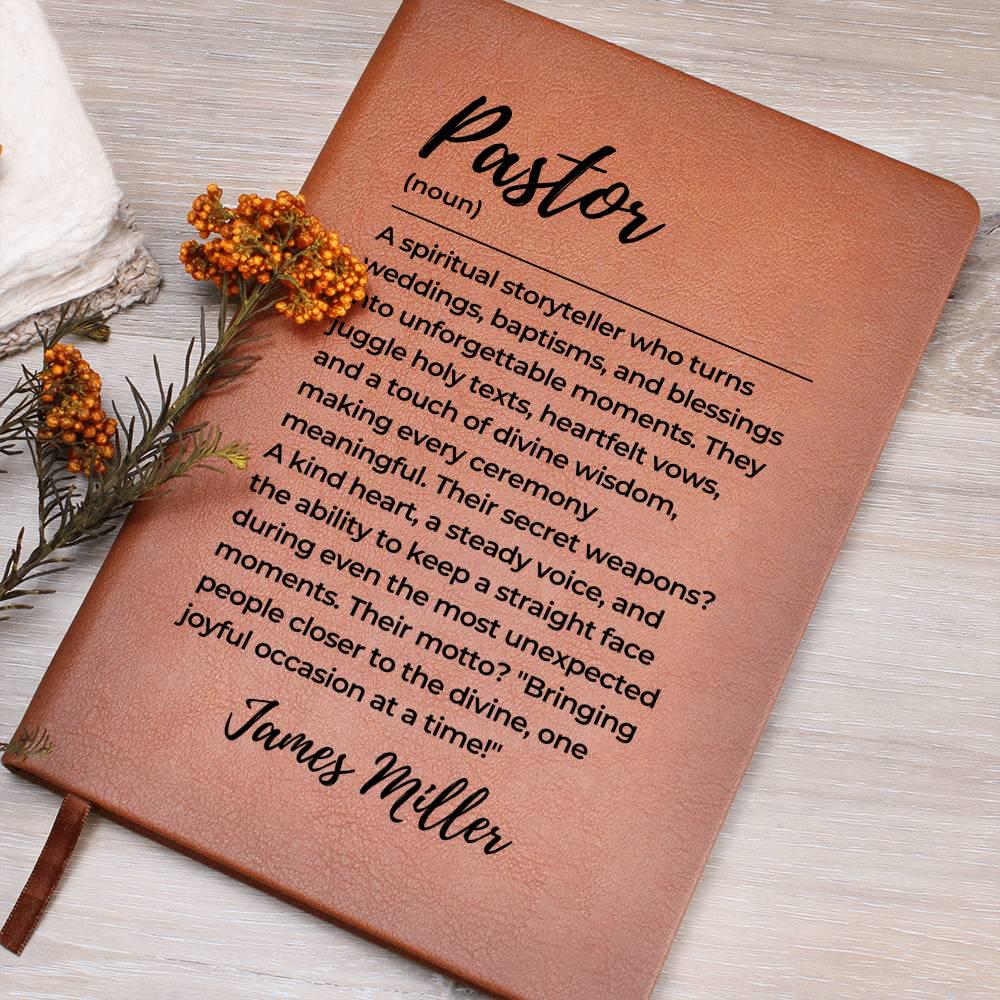 Pastor
(noun)
A spiritual storyteller who turns
weddings, baptisms, and blessings
into unforgettable moments. They
juggle holy texts, heartfelt vows,
and a touch of divine wisdom,
making every ceremony
meaningful. Their secret weapons?
A kind heart, a steady voice, and
the ability to keep a straight face
during even the most unexpected
moments. Their motto? "Bringing
people closer to the divine, one
joyful occasion at a time!"
James Miller